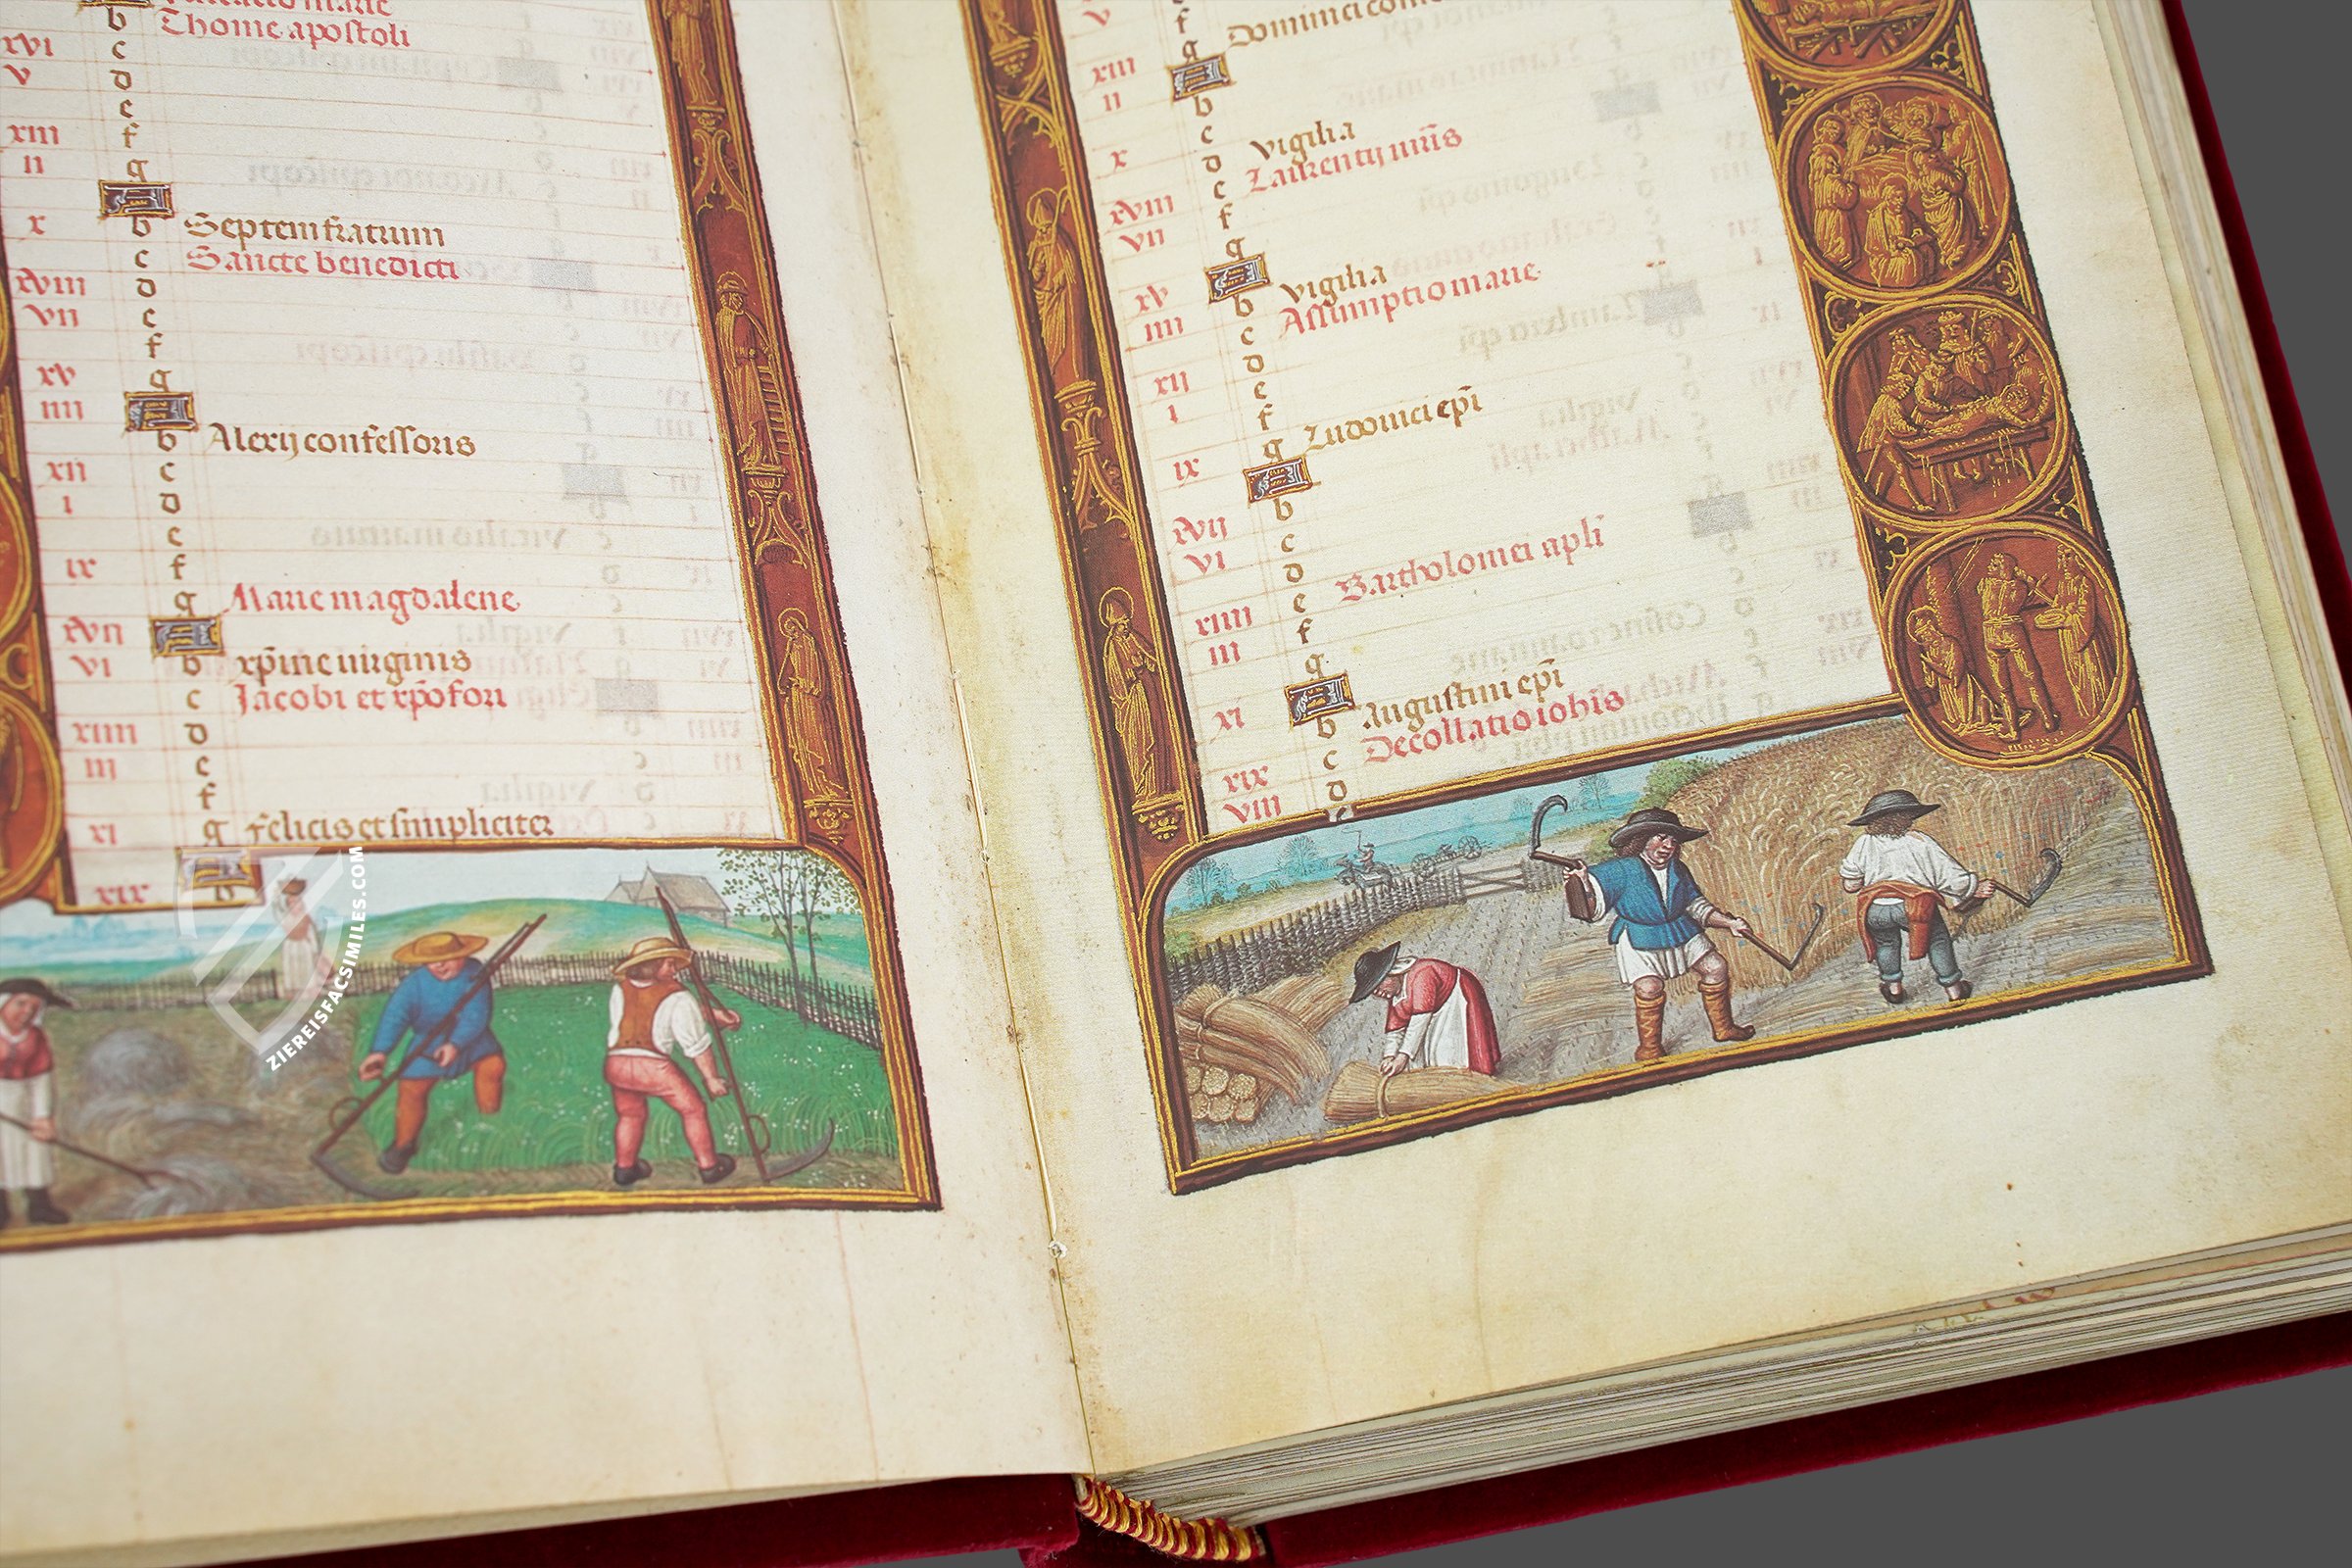 b
Thome apostoli
xvi c
v d
e
xiii f
ii g
A
x b Septem fratrum
c Sancte benedicti
xviii d
vii e
f
xv g
iiii A
b Alexij confessoris
xii c
i d
e
ix f
g Marie magdalene
xvii A
vi b xp̄ine uirginis
c Jacobi et xp̄ofori
xiiii d
iii e
f
xi g felicis et simpliciter
A
xix b
ZIEREISFACSIMILES.COM
v
f
g Dominici
xiii A
ii b
c
x d vigilia
e Laurentij
xviii f
vii g
A vigilia
xv b Assumptio marie
iiii c
d
xii e
i f
g Ludouici ep̄i
ix A
b
xvii c
vi d
e Bartholomei apl̄i
xiiii f
iii g
A Augustini ep̄i
xi b Decollatio ioh̄is
c
xix d
viii